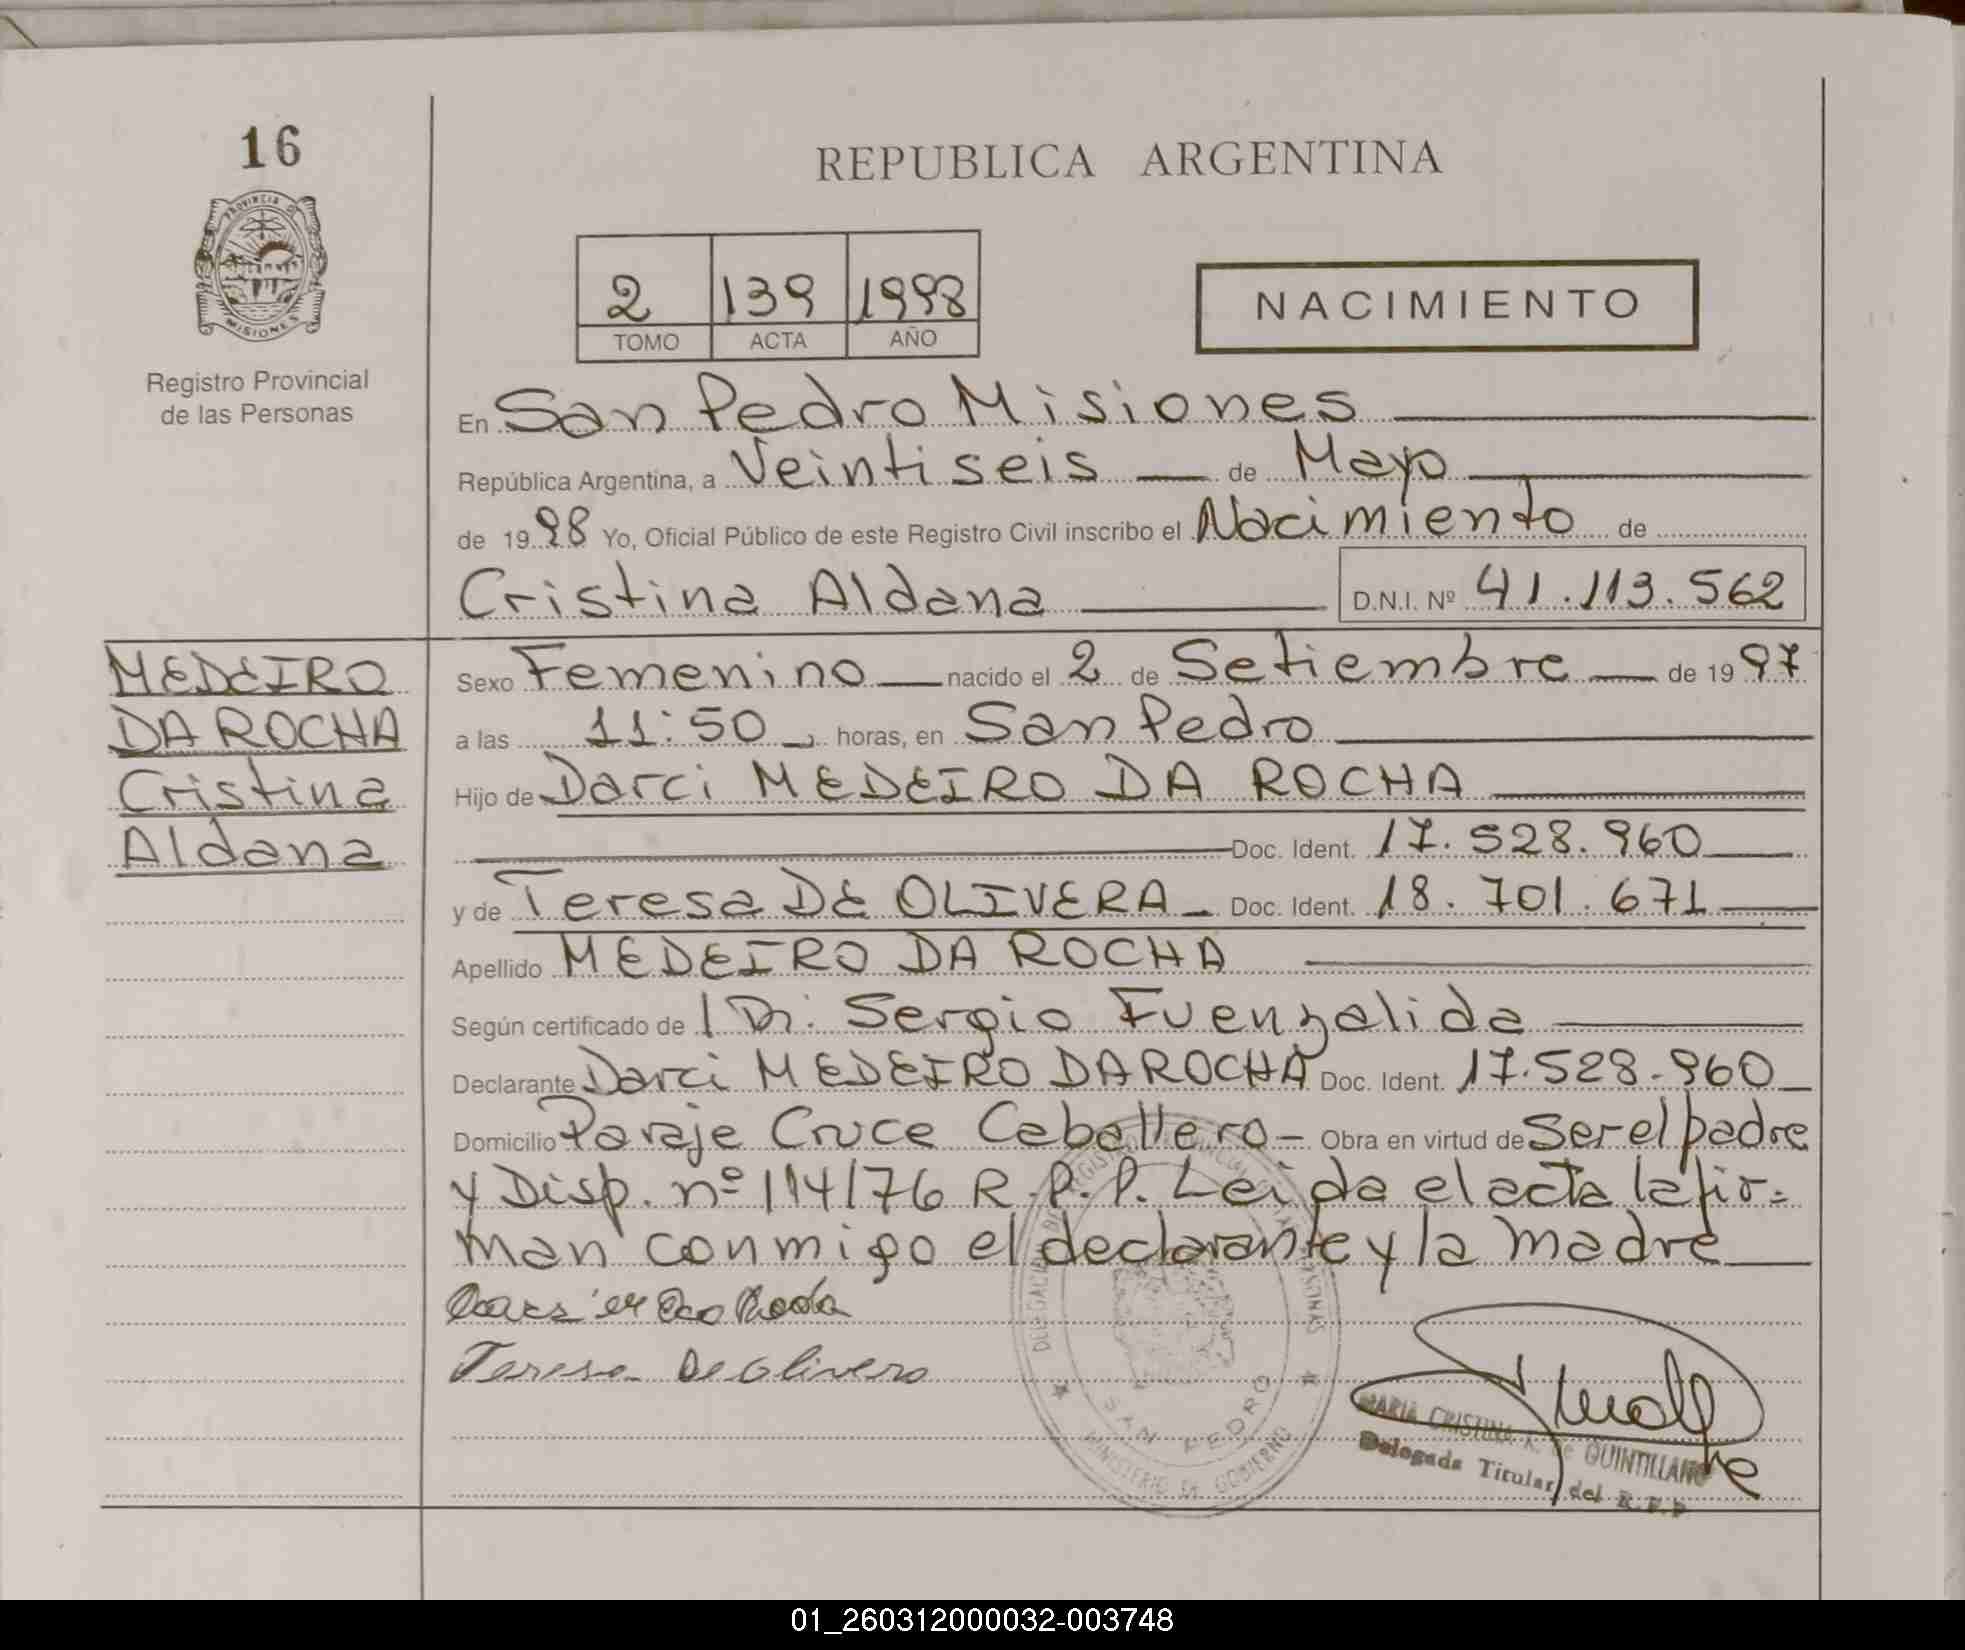 16
PROVINCIA DE
MISIONES
Registro Provincial
de las Personas
REPUBLICA ARGENTINA
2 139 1998
TOMO ACTA AÑO
NACIMIENTO
En San Pedro Misiones
República Argentina, a Veintiseis de Mayo
de 19 98 Yo, Oficial Público de este Registro Civil inscribo el Nacimiento de
Cristina Aldana D.N.I. Nº 41.113.562
MEDEIRO
DA ROCHA
Cristina
Aldana
Sexo Femenino nacido el 2 de Setiembre de 19 97
a las 11:50 horas, en San Pedro
Hijo de Darci MEDEIRO DA ROCHA
Doc. Ident. 17.528.960
y de Teresa DE OLIVERA Doc. Ident. 18.701.671
Apellido MEDEIRO DA ROCHA
Según certificado de Dr. Sergio Fuenzalida
Declarante Darci MEDEIRO DA ROCHA Doc. Ident. 17.528.960
Domicilio Paraje Cruce Caballero Obra en virtud de Ser el padre
y Disp. nº 114/76 R.P.P. Leida el acta la fir=
man conmigo el declarante y la madre
Teresa De Olivera
SAN PEDRO
MINISTERIO DE GOBIERNO
MARIA CRISTINA K. de QUINTILLANO
Delegada Titular del R.P.P.
01_260312000032-003748